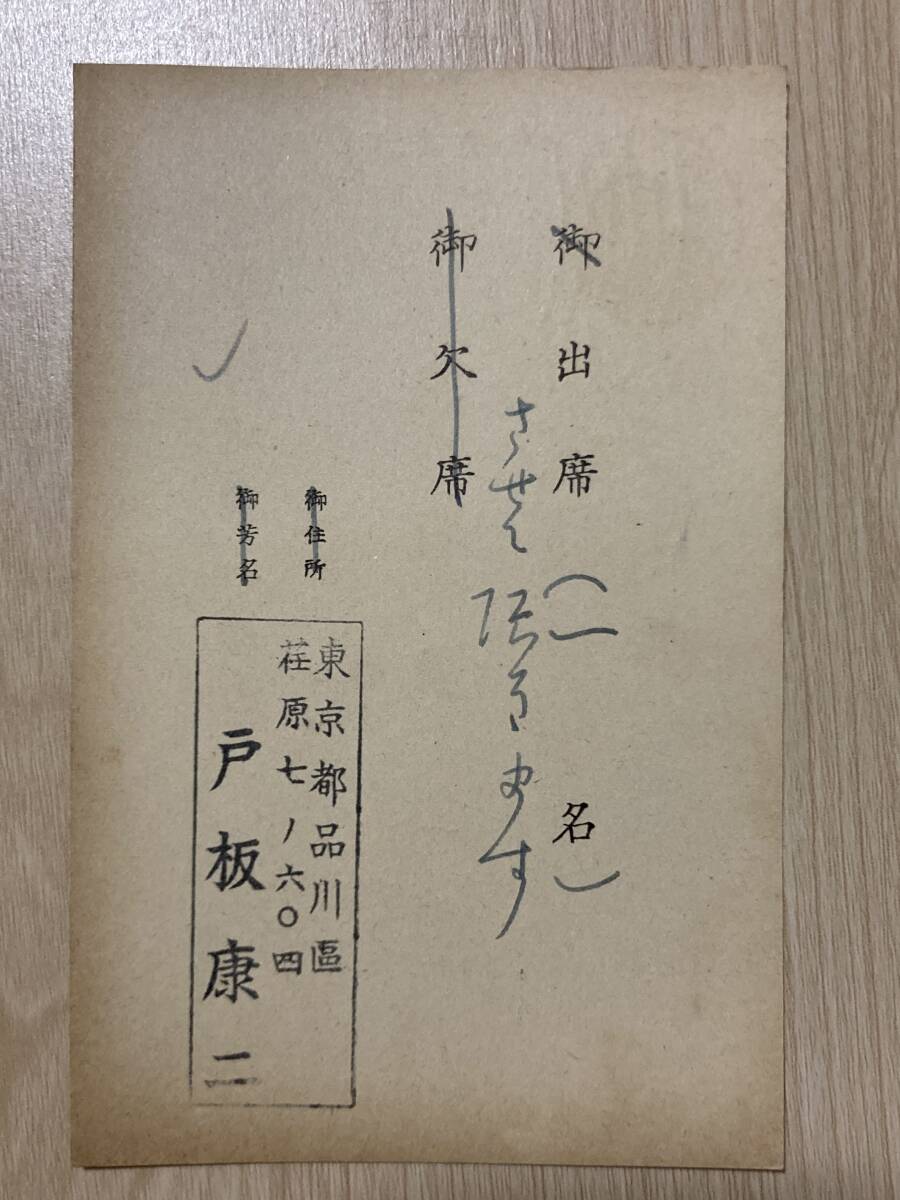 御出席（一名）
させて頂きます
御欠席
御住所
御芳名
東京都品川區
荏原七ノ六〇四
戸板康二